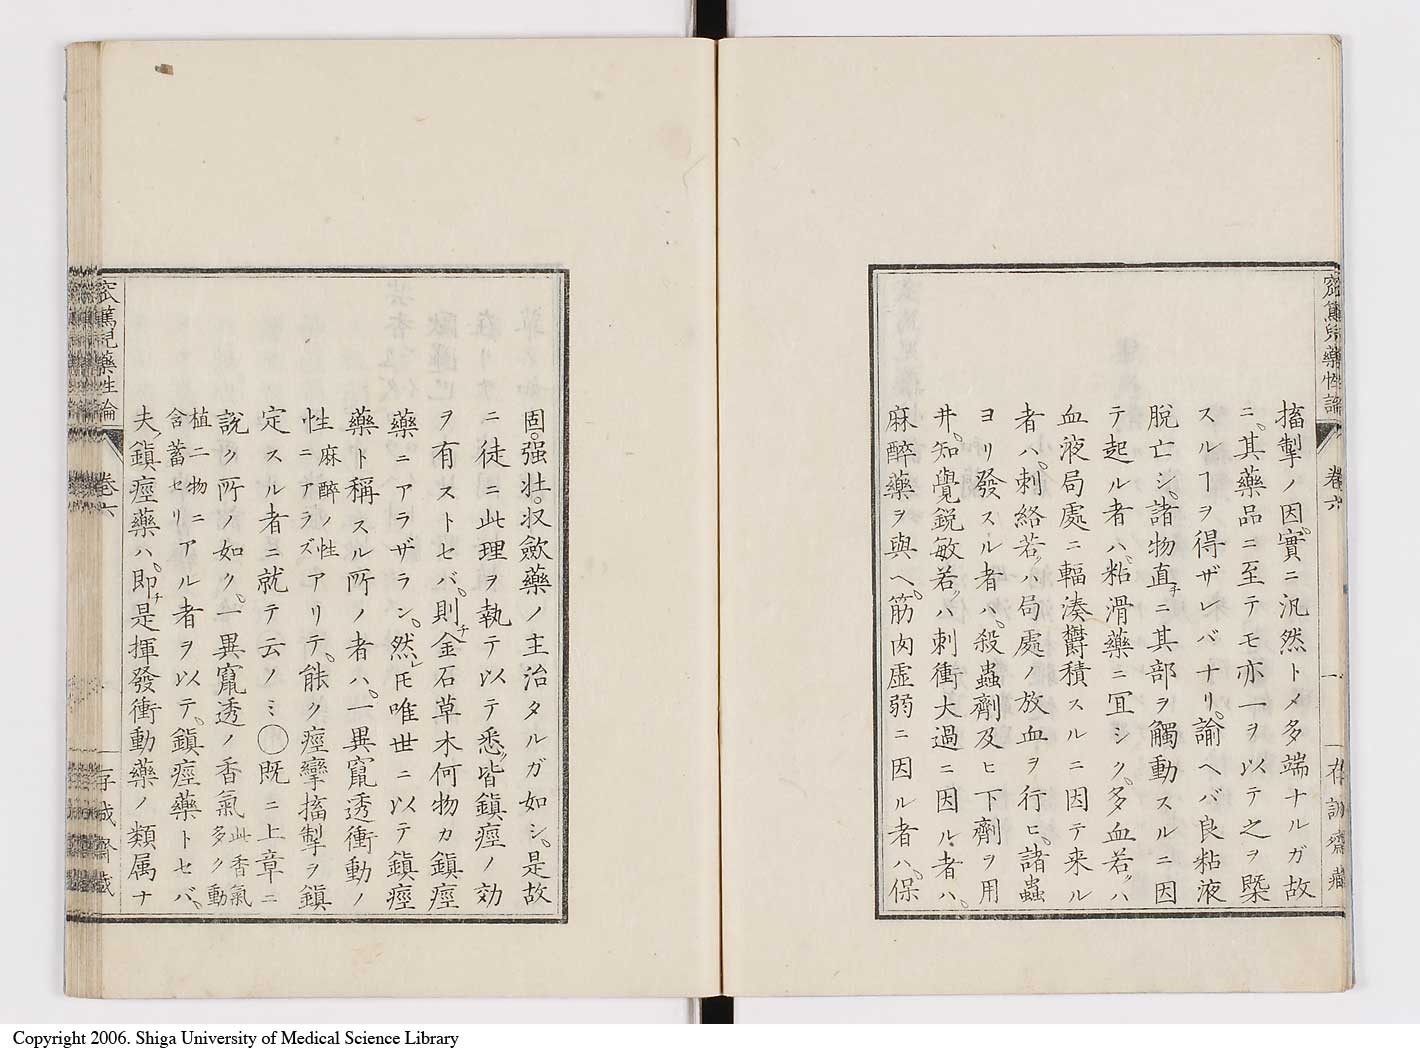 窊篤兒藥性論
卷六
一
存誠齋藏
搐掣ノ因。實ニ汎然トメ多端ナルガ故
ニ。其藥品ニ至テモ亦一ヲ以テ之ヲ槩
スルヿヲ得ザレバナリ。諭ヘバ良粘液
脱亡シ。諸物直チニ其部ヲ觸動スルニ因
テ起ル者ハ。粘滑藥ニ宜シク。多血若クハ
血液局處ニ輻湊欝積スルニ因テ来ル
者ハ。刺絡若クハ局處ノ放血ヲ行ヒ。諸蟲
ヨリ發スル者ハ。殺蟲劑及ヒ下劑ヲ用
井。知覺鋭敏若クハ刺衝大過ニ因ル者ハ。
麻醉藥ヲ與ヘ。筋肉虚弱ニ因ル者ハ。保
固。强壮。収斂藥ノ主治タルガ如シ。是故
ニ徒ニ此理ヲ執テ以テ悉ク皆鎭痙ノ効
ヲ有ストセバ。則チ金石草木何物カ鎭痙
藥ニアラザラン。然レ𪜈唯世ニ以テ鎭痙
藥ト稱スル所ノ者ハ。一異竄透衝動ノ
性麻醉ノ性ニアラズアリテ。能ク痙攣搐掣ヲ鎭
定スル者ニ就テ云ノミ○既ニ上章ニ
説ク所ノ如ク。一異竄透ノ香氣此香氣多ク動
植二物ニ含蓄セリアル者ヲ以テ。鎭痙藥トセバ。
夫ノ鎭痙藥ハ。即チ是揮發衝動藥ノ類属ナ
窊篤兒藥性論
卷六
一
存誠齋藏
Copyright 2006. Shiga University of Medical Science Library